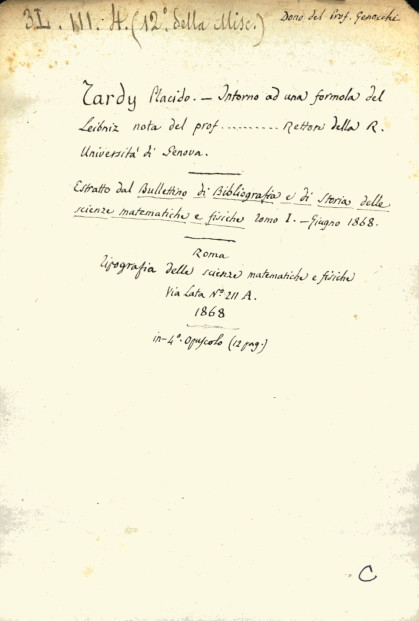 3L. III. 4. (12º. della Misc.)
Dono del Prof. Genocchi
Tardy Placido. — Intorno ad una formola del
Leibniz nota del prof .......... Rettore della R.
Università di Genova.
Estratto dal Bullettino di Bibliografia e di Storia delle
scienze matematiche e fisiche Tomo I. — Giugno 1868.
Roma
Tipografia delle scienze matematiche e fisiche
Via Lata Nº. 211 A.
1868
in-4º. Opuscolo (12 pag.)
C